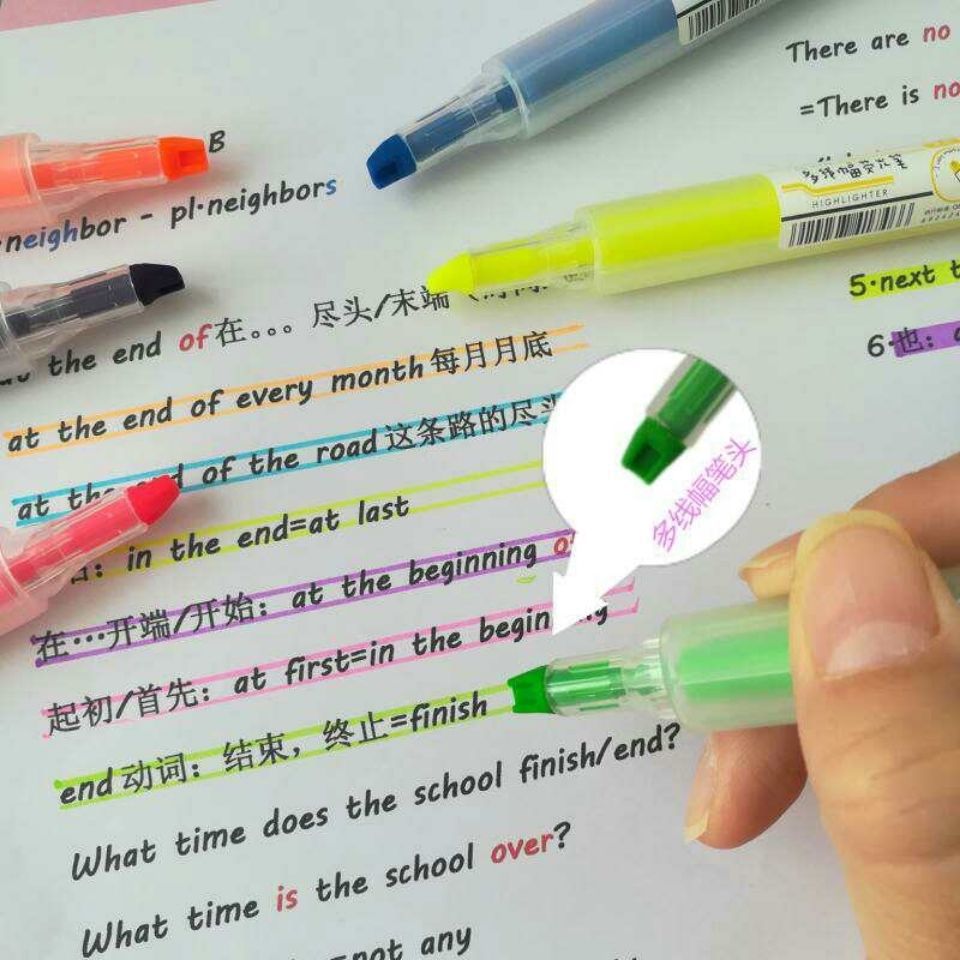 There are no
=There is no
B
neighbor - pl·neighbors
多线幅荧光笔
HIGHLIGHTER
5·next
the end of在。。。尽头/末端
6·也:
at the end of every month每月月底
at the end of the road这条路的尽头
: in the end=at last
多线幅笔头
在…开端/开始: at the beginning
起初/首先: at first=in the beginning
end动词: 结束, 终止=finish
What time does the school finish/end?
What time is the school over?
=not any